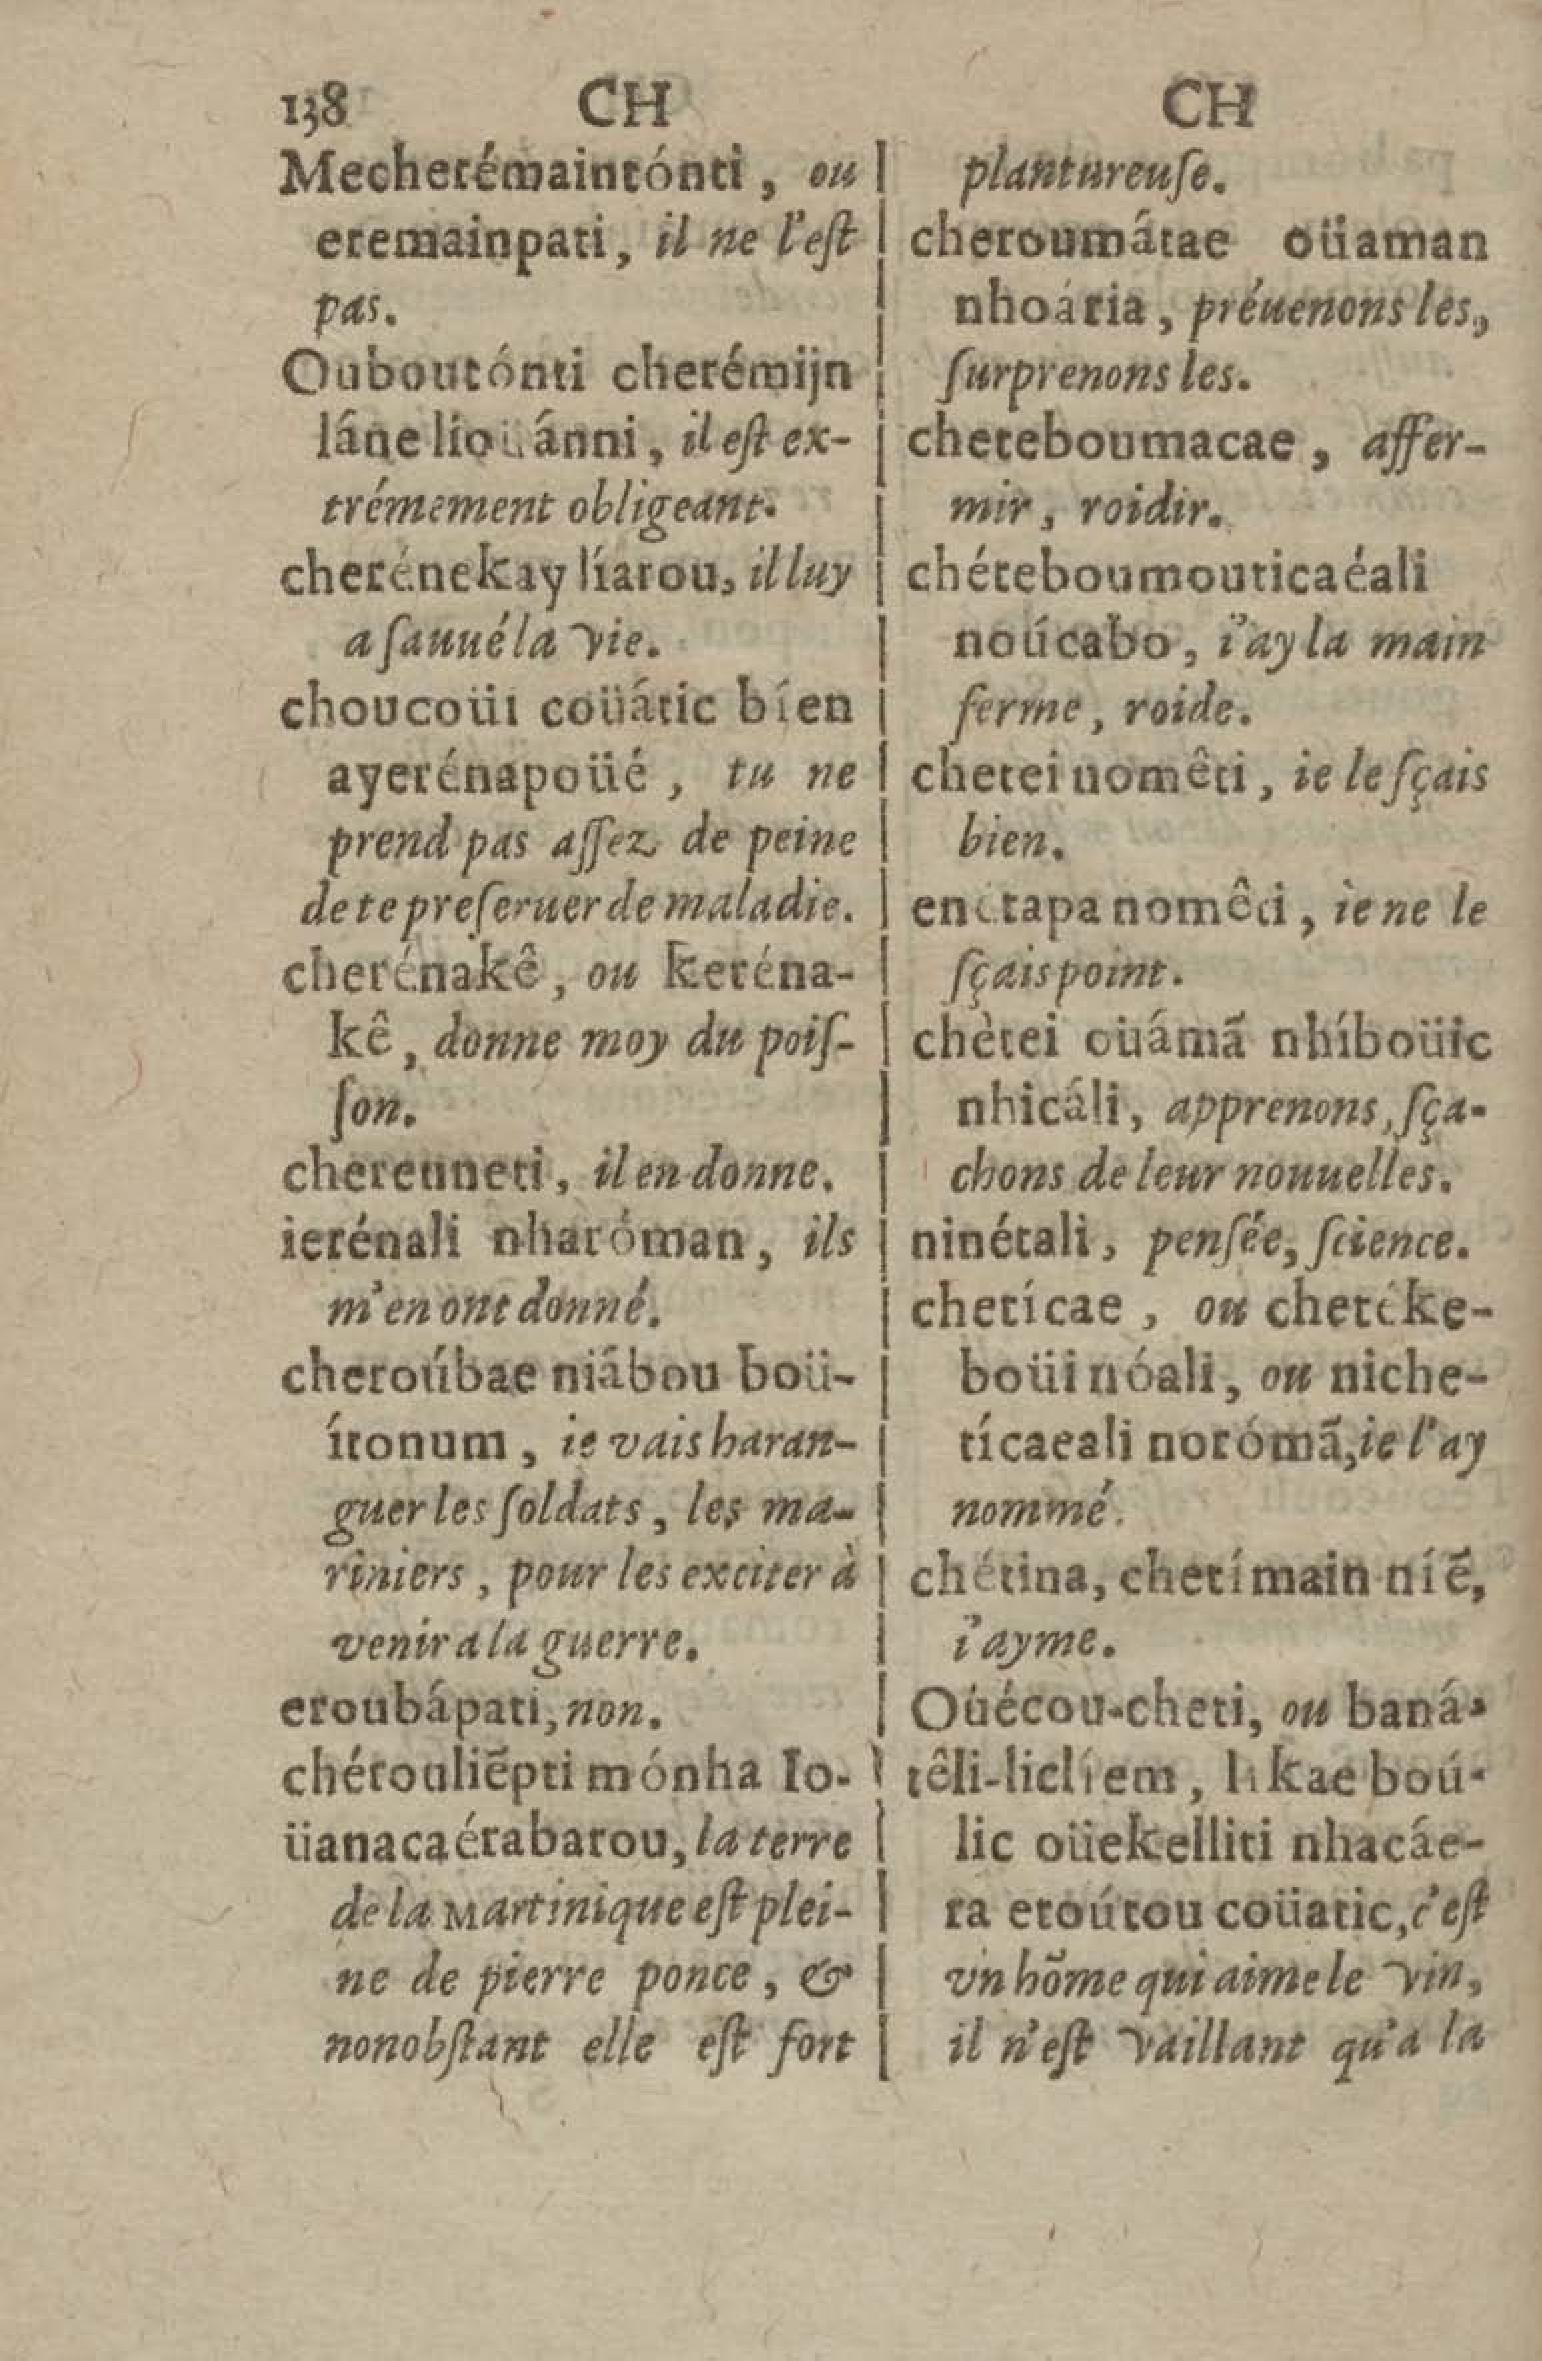 138 CH CH
Mecherémaintónti, ou
eremainpati, il ne l'eſt
pas.
Ouboutónti cherémijn
láne lioüánni, il eſt ex-
trémement obligeant.
cherénekay líarou, il luy
a ſauué la vie.
choucoüi coüátic bíen
ayerénapoüé, tu ne
prend pas aſſez de peine
de te preſeruer de maladie.
cherénakê, ou keréna-
kê, donne moy du poiſ-
ſon.
chereuneti, il en donne.
ierénali nharóman, ils
m'en ont donné.
cheroúbae niábou boü-
ítonum, ie vais haran-
guer les ſoldats, les ma-
riniers, pour les exciter à
venir a la guerre.
eroubápati, non.
chérouliẽpti mónha Io-
üanacaérabarou, la terre
de la Martinique eſt plei-
ne de pierre ponce, &
nonobſtant elle eſt fort
plantureuſe.
cheroumátae oüaman
nhoária, préuenons les,
ſurprenons les.
cheteboumacae, affer-
mir, roidir.
chéteboumouticaéali
noúcabo, i'ay la main
ferme, roide.
chetei nomêti, ie le ſçais
bien.
enétapa nomêti, ie ne le
ſçais point.
chètei oüámã nhíboüic
nhicáli, apprenons, ſça-
chons de leur nouuelles.
ninétali, penſée, ſcience.
chetícae, ou chetéke-
boüi nóali, ou niche-
tícaeali norómã, ie l'ay
nommé.
chétina, chetímain níẽ,
i'ayme.
Oüécou-cheti, ou baná-
têli-liclíem, likae boú-
lic oüekelliti nhacáe-
ra etoútou coüatic, c'eſt
vn hõme qui aime le vin,
il n'eſt vaillant qu'a la